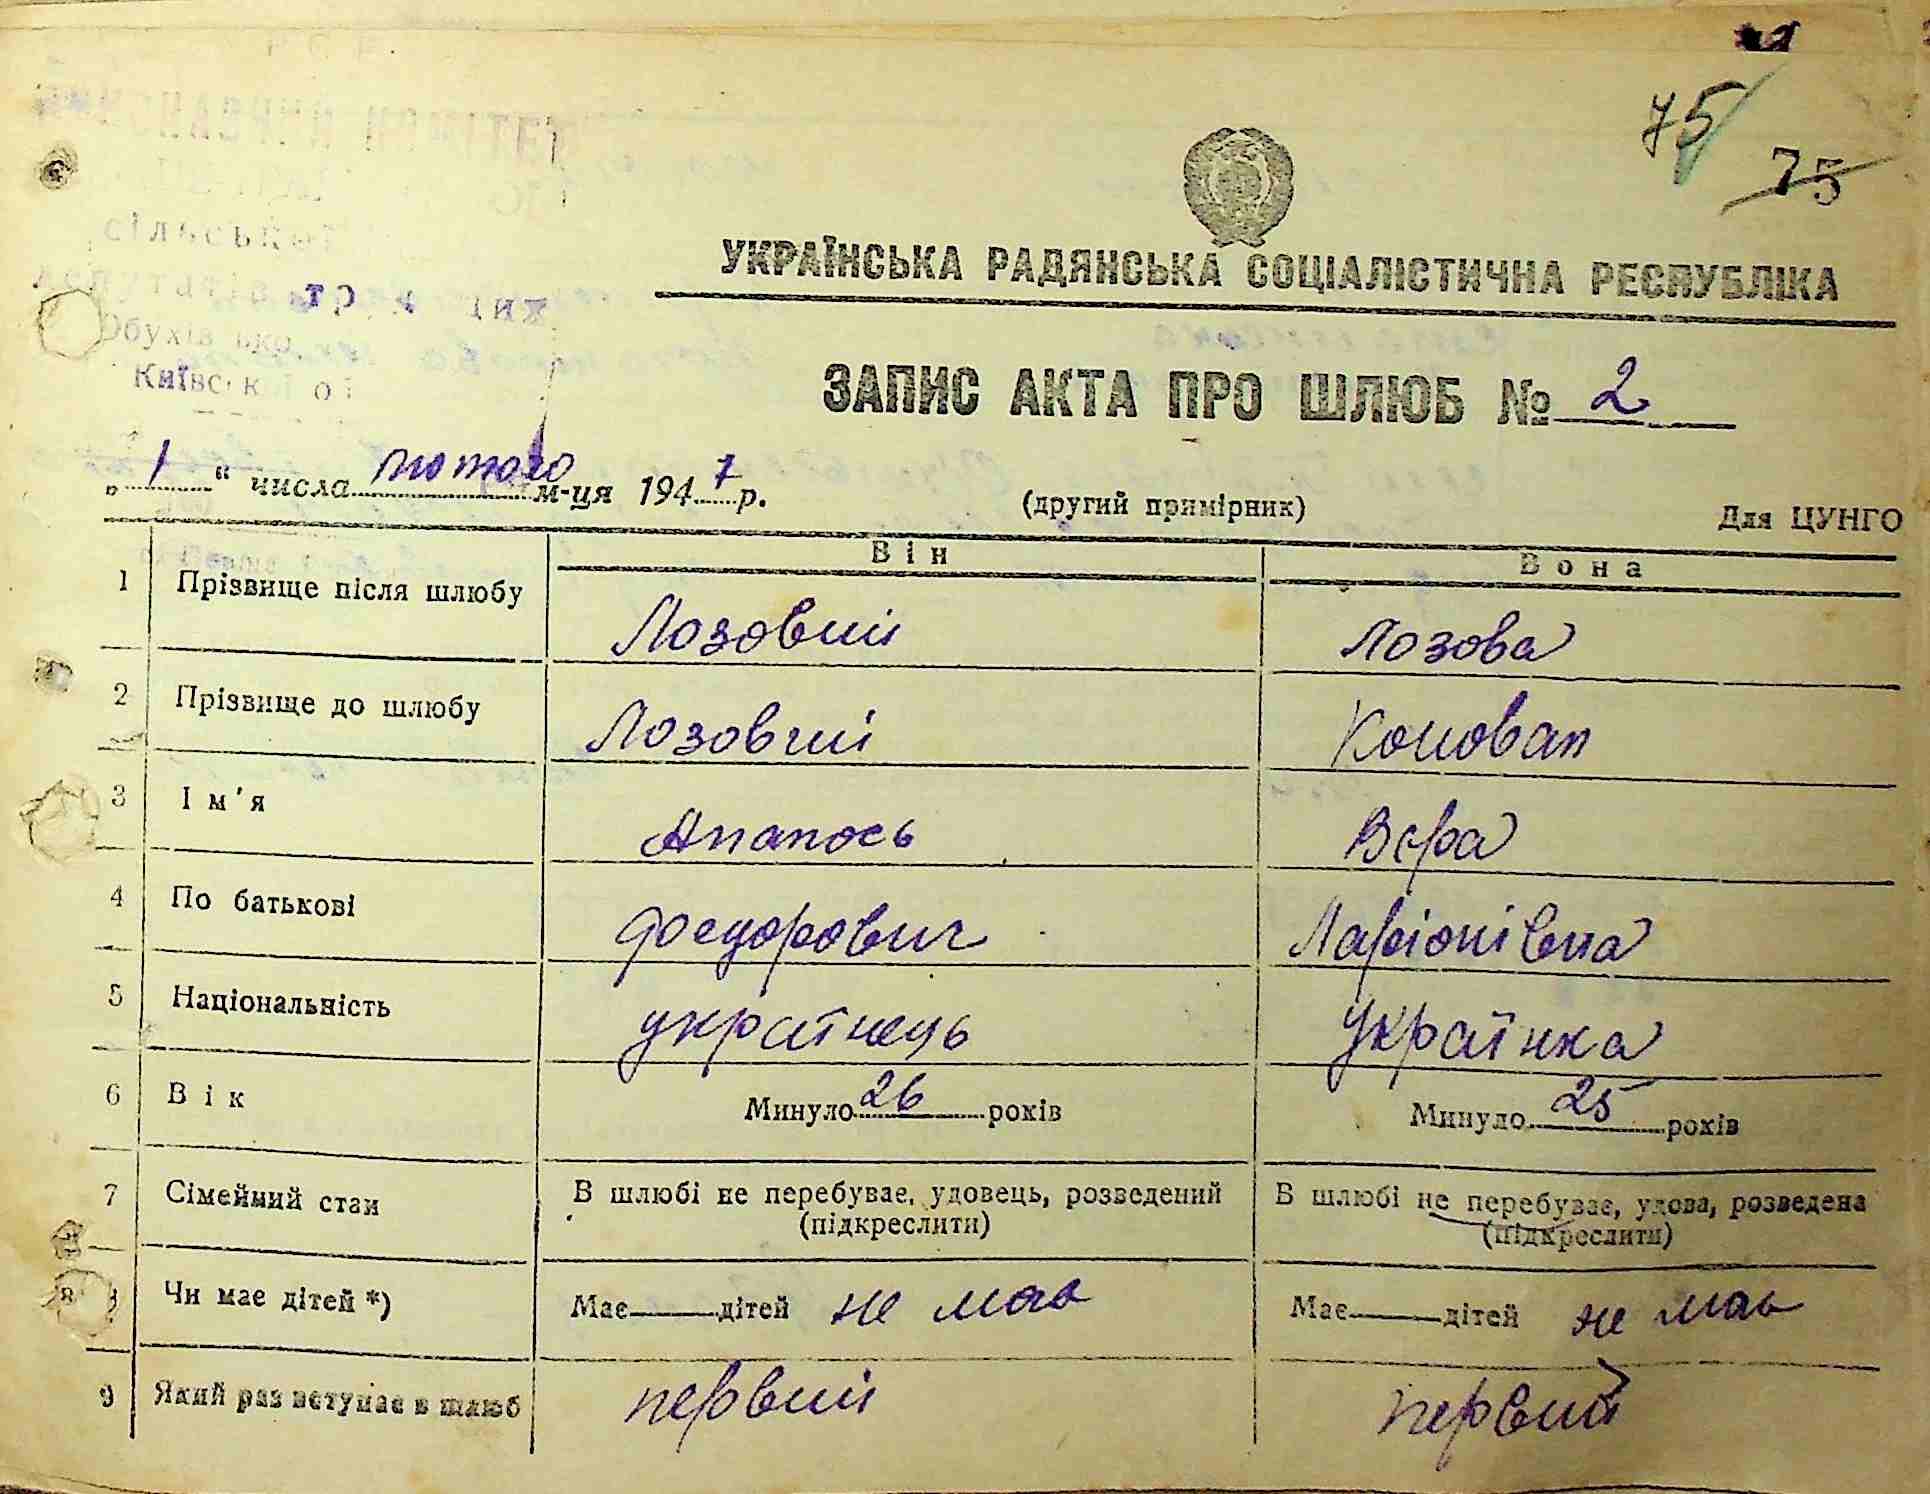 75
75
сільської
депутатів трудящих
Обухівсько
Київської о
УКРАЇНСЬКА РАДЯНСЬКА СОЦІАЛІСТИЧНА РЕСПУБЛІКА
ЗАПИС АКТА ПРО ШЛЮБ № 2
„ 1 “ числа лютого м-ця 1947 р.
(другий примірник)
Для ЦУНГО
Він Вона
1 Прізвище після шлюбу Лозовий Лозова
2 Прізвище до шлюбу Лозовий Коновал
3 Ім'я Апанось Вєра
4 По батькові Фосдорович Ларіонівна
5 Національність українець Українка
6 Вік Минуло 26 років Минуло 25 років
7 Сімейний стан В шлюбі не перебуває, удовець, розведений В шлюбі не перебуває, удова, розведена
(підкреслити) (підкреслити)
8 Чи має дітей *) Має дітей не має Має дітей не має
9 Який раз вступає в шлюб первий первий